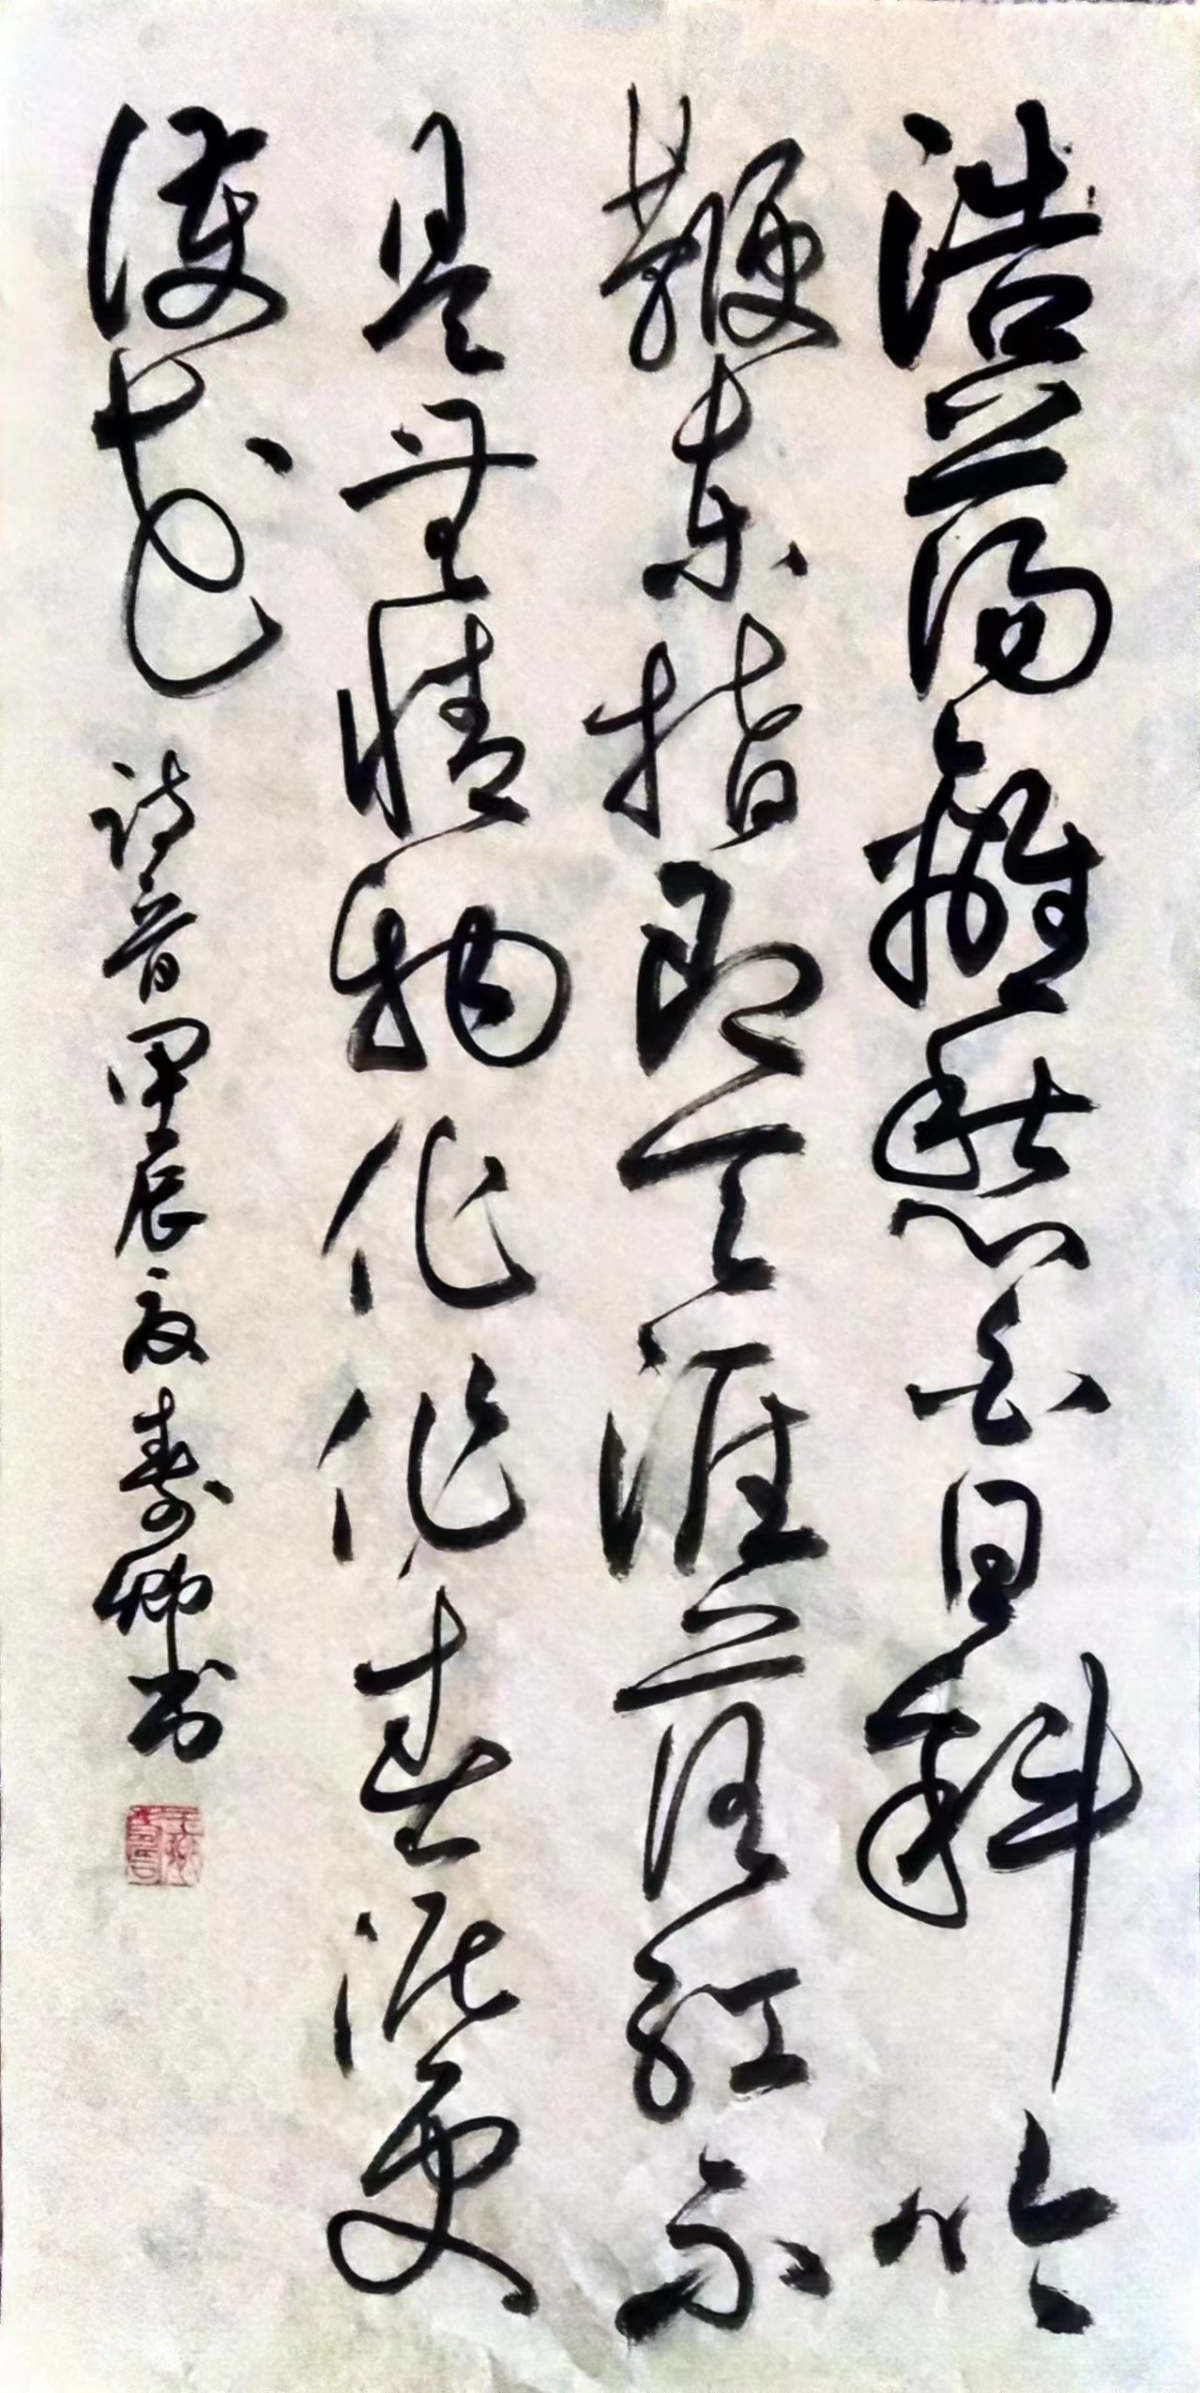 浩蕩離愁白日斜吟
鞭东指即天涯落红不
是無情物化作春泥更
護花 诗首甲辰夏寿卿书